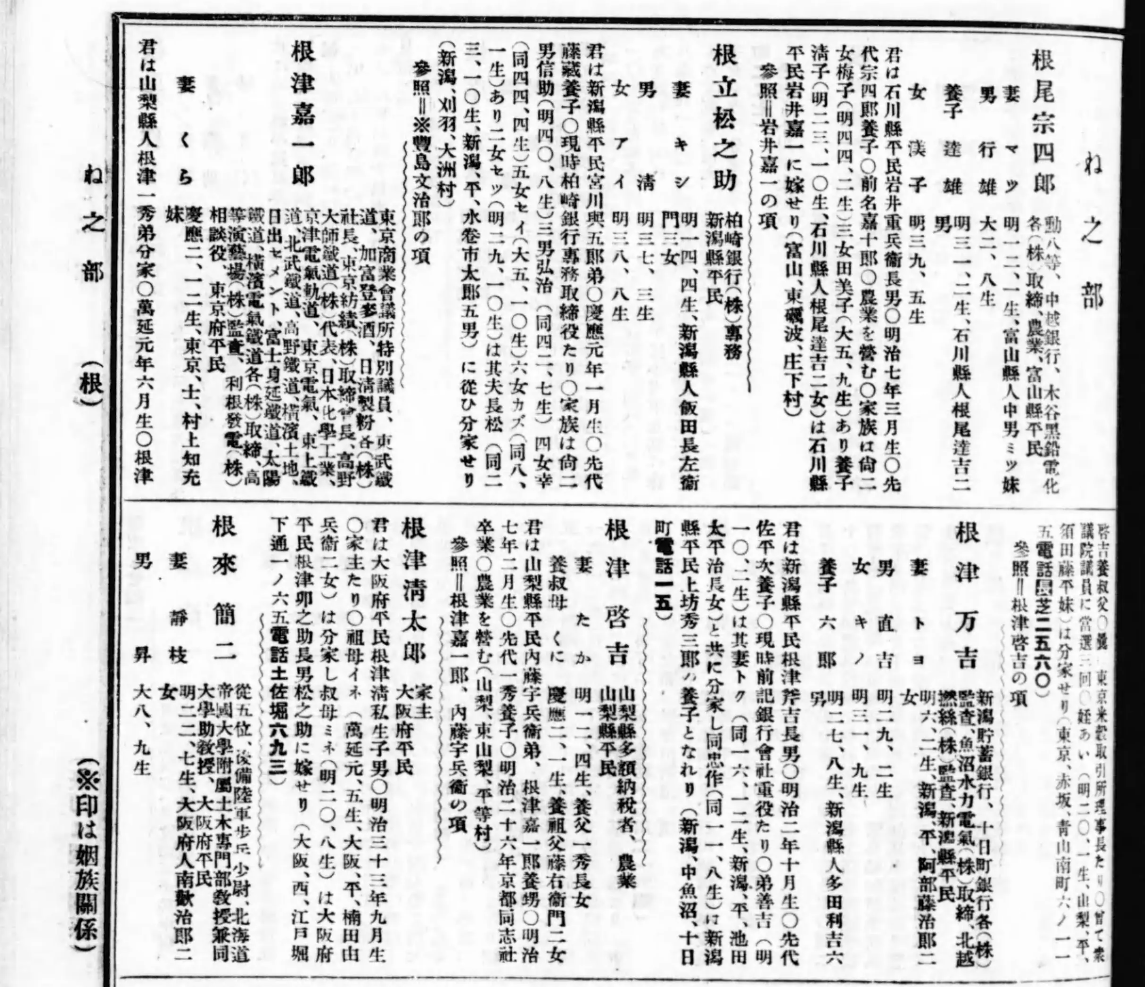 ね之部
根尾宗四郎
勳八等、中越銀行、木谷黒鉛電化
各(株)取締、農業、富山縣平民
妻 マツ 明一二、一生、富山縣人中男ミツ妹
男 行雄 大二、八生
養子 達雄 明三一、二生、石川縣人根尾達吉二男
女 渼子 明三九、五生
君は石川縣平民岩井重兵衞長男〇明治七年三月生〇先
代宗四郎養子〇前名嘉十郎〇農業を營む〇家族は尙二
女梅子(明四四、二生)三女田美子(大五、九生)あり養子
淸子(明二三、一〇生、石川縣人根尾達吉二女)は石川縣
平民岩井嘉一に嫁せり(富山、東礪波、庄下村)
參照=岩井嘉一の項
根立松之助
柏崎銀行(株)專務
新潟縣平民
妻 キシ 明一四、四生、新潟縣人飯田長左衞門三女
男 淸 明三七、三生
女 アイ 明三八、八生
君は新潟縣平民宮川與五郎弟〇慶應元年一月生〇先代
藤藏養子〇現時柏崎銀行專務取締役たり〇家族は尙二
男信助(明四〇、八生)三男弘治(同四二、七生)四女幸
(同四四、四生)五女セイ(大五、一〇生)六女カズ(同八、
一生)あり二女セツ(明二九、一〇生)は其夫長松(同二
三、一〇生、新潟、平、水卷市太郎五男)に從ひ分家せり
(新潟、刈羽、大洲村)
參照=※豐島文治郎の項
根津嘉一郎
東京商業會議所特別議員、東武鐵
道、加富登麥酒、日淸製粉各(株)
社長、東京紡績(株)取締會長、高野
大師鐵道(株)代表、日本化學工業、
京津電氣軌道、東京電氣、東上鐵
道、北武鐵道、高野鐵道、橫濱土地、
日出セメント、富士身延鐵道、太陽
鐵道、橫濱電氣鐵道各(株)取締、高
等演藝場(株)監査、利根發電(株)
相談役、東京府平民
妻 くら 慶應二、一二生、東京、士、村上知充妹
君は山梨縣人根津一秀弟分家〇萬延元年六月生〇根津
啓吉養叔父〇曩 東京米穀取引所理事長たり〇曾て衆
議院議員に當選三回〇姪あい(明二〇、一生、山梨、平、
須田藤平妹)は分家せり(東京、赤坂、靑山南町六ノ一一
五電話長芝二五六〇)
參照=根津啓吉の項
根津万吉
新潟貯蓄銀行、十日町銀行各(株)
監査、魚沼水力電氣(株)取締、北越
撚絲(株)監査、新潟縣平民
妻 トヨ 明六、二生、新潟、平、阿部藤治郎二女
男 直吉 明二九、二生
女 キノ 明三一、九生
養子 六郎 明二七、八生、新潟縣人多田利吉六男
君は新潟縣平民根津斧吉長男〇明治二年十月生〇先代
佐平次養子〇現時前記銀行會社重役たり〇弟善吉(明
一〇、二生)は其妻トク(同一六、一二生、新潟、平、池田
太平治長女)と共に分家し同忠作(同一一、八生)は新潟
縣平民上坊秀三郎の養子となれり(新潟、中魚沼、十日
町電話一五)
根津啓吉
山梨縣多額納稅者、農業
山梨縣平民
妻 たか 明一二、四生、養父一秀長女
養叔母 たくに 慶應二、一生、養祖父藤右衞門二女
君は山梨縣平民內藤宇兵衞弟、根津嘉一郎養甥〇明治
七年二月生〇先代一秀養子〇明治二十六年京都同志社
卒業〇農業を營む(山梨、東山梨、平等村)
參照=根津嘉一郎、內藤宇兵衞の項
根津淸太郎
家主
大阪府平民
君は大阪府平民根津淸私生子男〇明治三十三年九月生
〇家主たり〇祖母イネ(萬延元、五生、大阪、平、楠田由
兵衞二女)は分家し叔母ミネ(明二〇、八生)は大阪府
平民根津卯之助長男松之助に嫁せり(大阪、西、江戶堀
下通一ノ六五電話土佐堀六九三)
根來簡二
從五位、後備陸軍步兵少尉、北海道
帝國大學附屬土木專門部敎授兼同
大學助敎授、大阪府平民
妻 靜枝 明二二、七生、大阪府人南歡治郎二女
男 昇 大八、九生
ね之部 (根)
(※印は姻族關係)